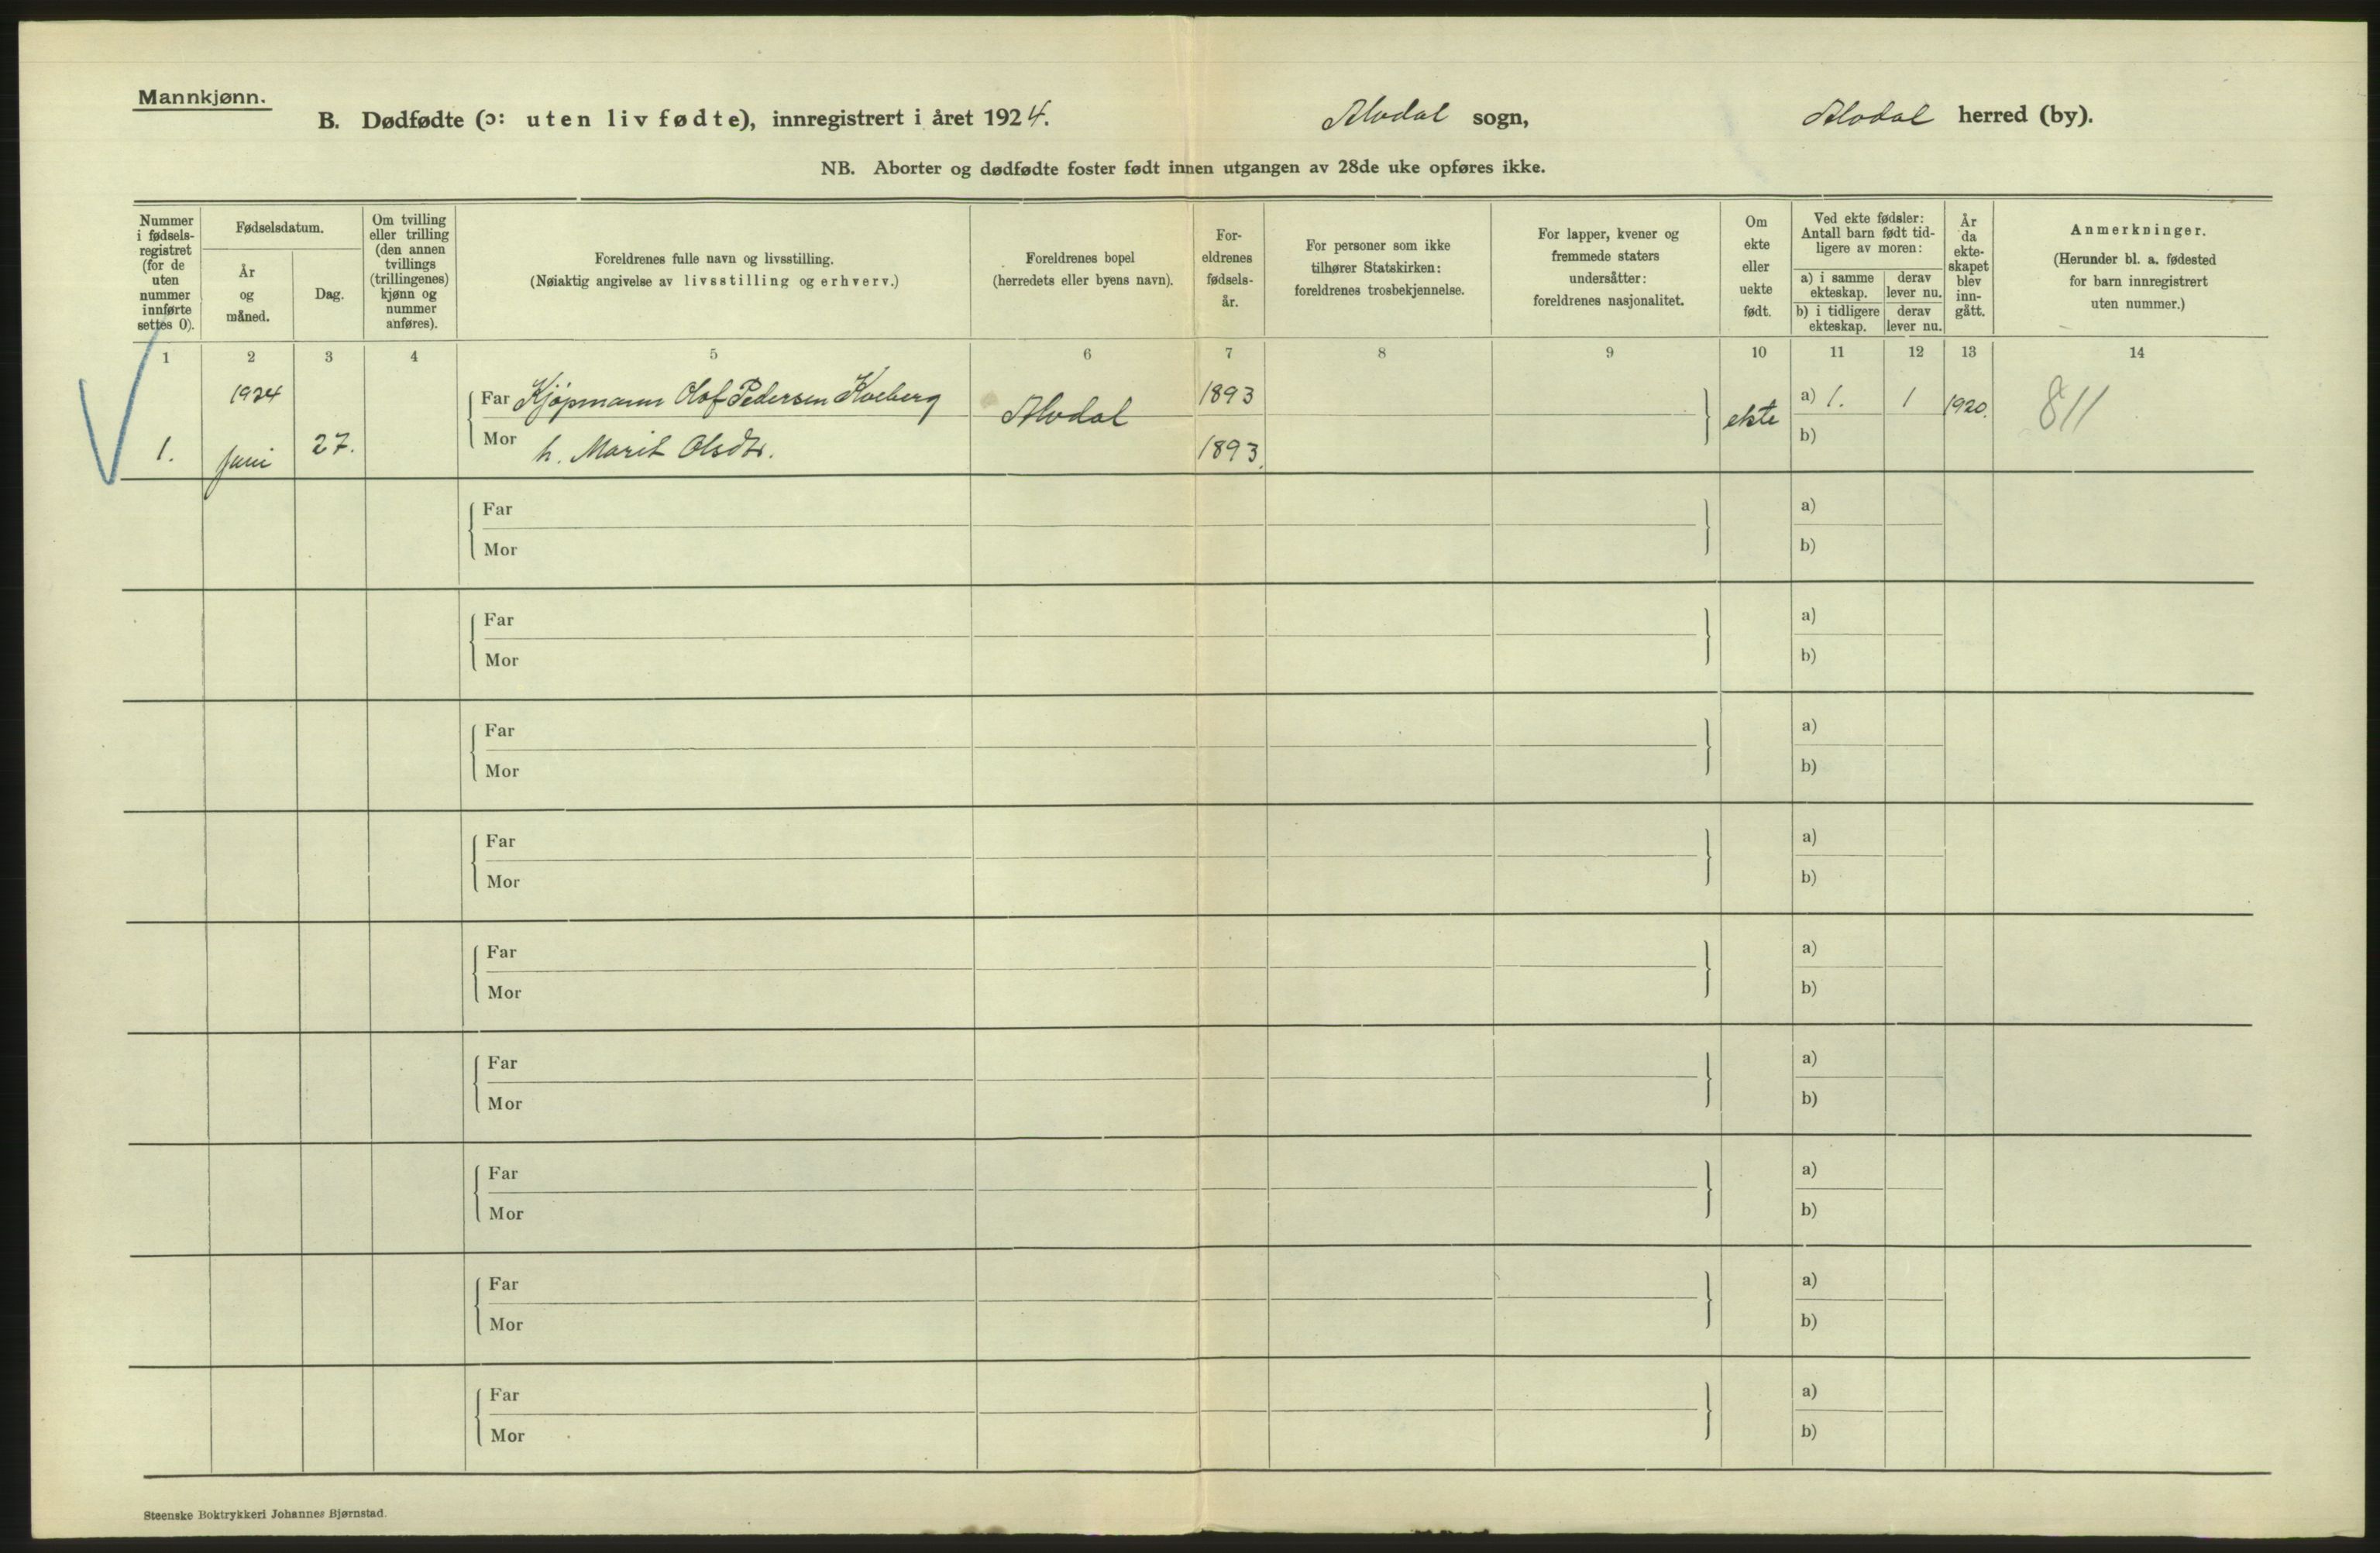 Mannkjønn.
B. Dødfødte (ɔ: uten liv fødte), innregistrert i året 1924. Alvdal sogn, Alvdal herred (by).
NB. Aborter og dødfødte foster født innen utgangen av 28de uke opføres ikke.
Nummer i fødsels-registret (for de uten nummer innførte settes 0).
Fødselsdatum.
År og måned.
Dag.
Om tvilling eller trilling (den annen tvillings (trillingenes) kjønn og nummer anføres).
Foreldrenes fulle navn og livsstilling.
(Nøiaktig angivelse av livsstilling og erhverv.)
Foreldrenes bopel
(herredets eller byens navn).
For-eldrenes fødsels-år.
For personer som ikke tilhører Statskirken: foreldrenes trosbekjennelse.
For lapper, kvener og fremmede staters undersåtter: foreldrenes nasjonalitet.
Om ekte eller uekte født.
Ved ekte fødsler: Antall barn født tid-ligere av moren:
a) i samme ekteskap.
derav lever nu.
b) i tidligere ekteskap.
derav lever nu.
År da ekte-skapet blev inn-gått.
Anmerkninger.
(Herunder bl. a. fødested for barn innregistrert uten nummer.)
1 2 3 4 5 6 7 8 9 10 11 12 13 14
1924 Far Kjøpmann Olof Pedersen Kveberg Alvdal 1893 ekte a) 1. 1 1920. 811
1. juni 27. Mor h. Marit Olsdtr. 1893. b)
Far a)
Mor b)
Far a)
Mor b)
Far a)
Mor b)
Far a)
Mor b)
Far a)
Mor b)
Far a)
Mor b)
Far a)
Mor b)
Far a)
Mor b)
Far a)
Mor b)
Steenske Boktrykkeri Johannes Bjørnstad.